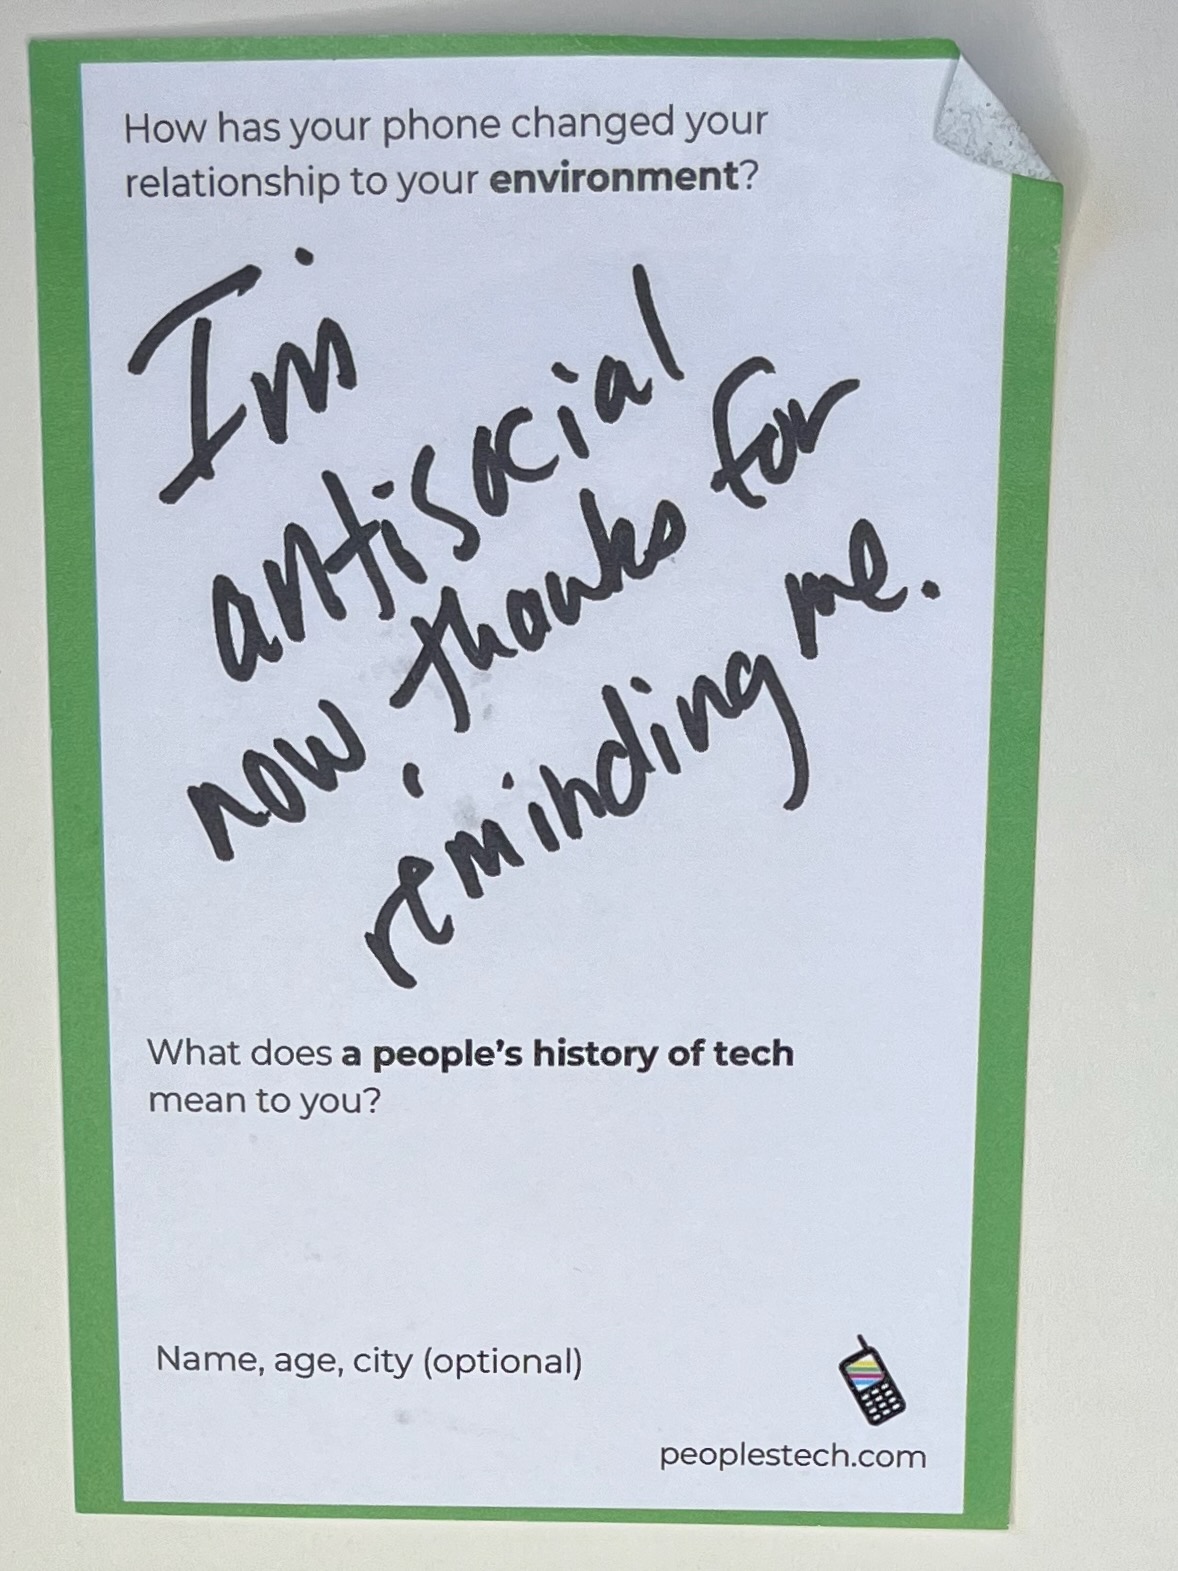 How has your phone changed your
relationship to your environment?
I'm
antisocial
now, thanks for
reminding me.
What does a people's history of tech
mean to you?
Name, age, city (optional)
peoplestech.com